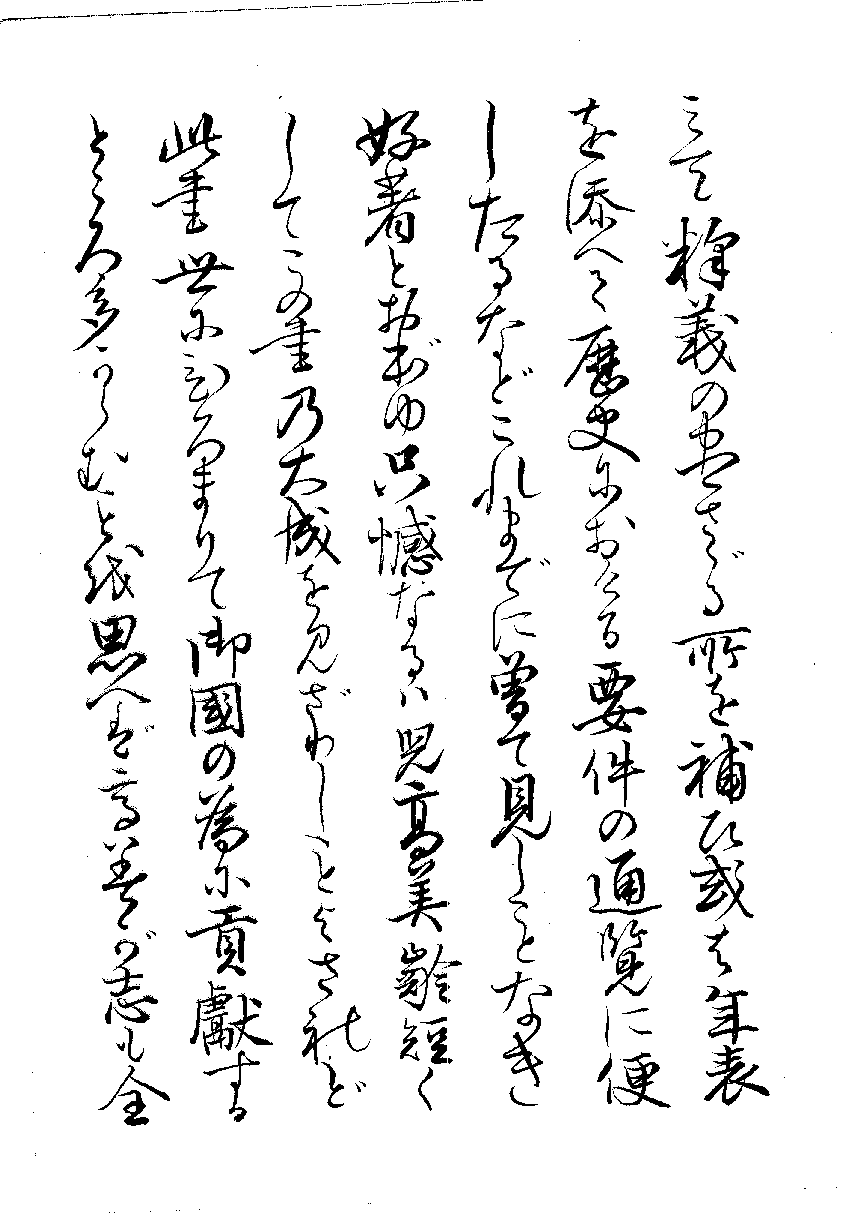 こて釋義の盡さゞる所を補ひ或は年表
を添へて歴史におくる要件の通覧に便
したるなどこれまでに曽て見しことなき
好著とおぼゆ只憾なるは児高美齢短く
してこの書乃大成を見ざりしことよされど
此書世にひろまりて御國の為に貢獻する
ところ多からむと思へば高美が志も全